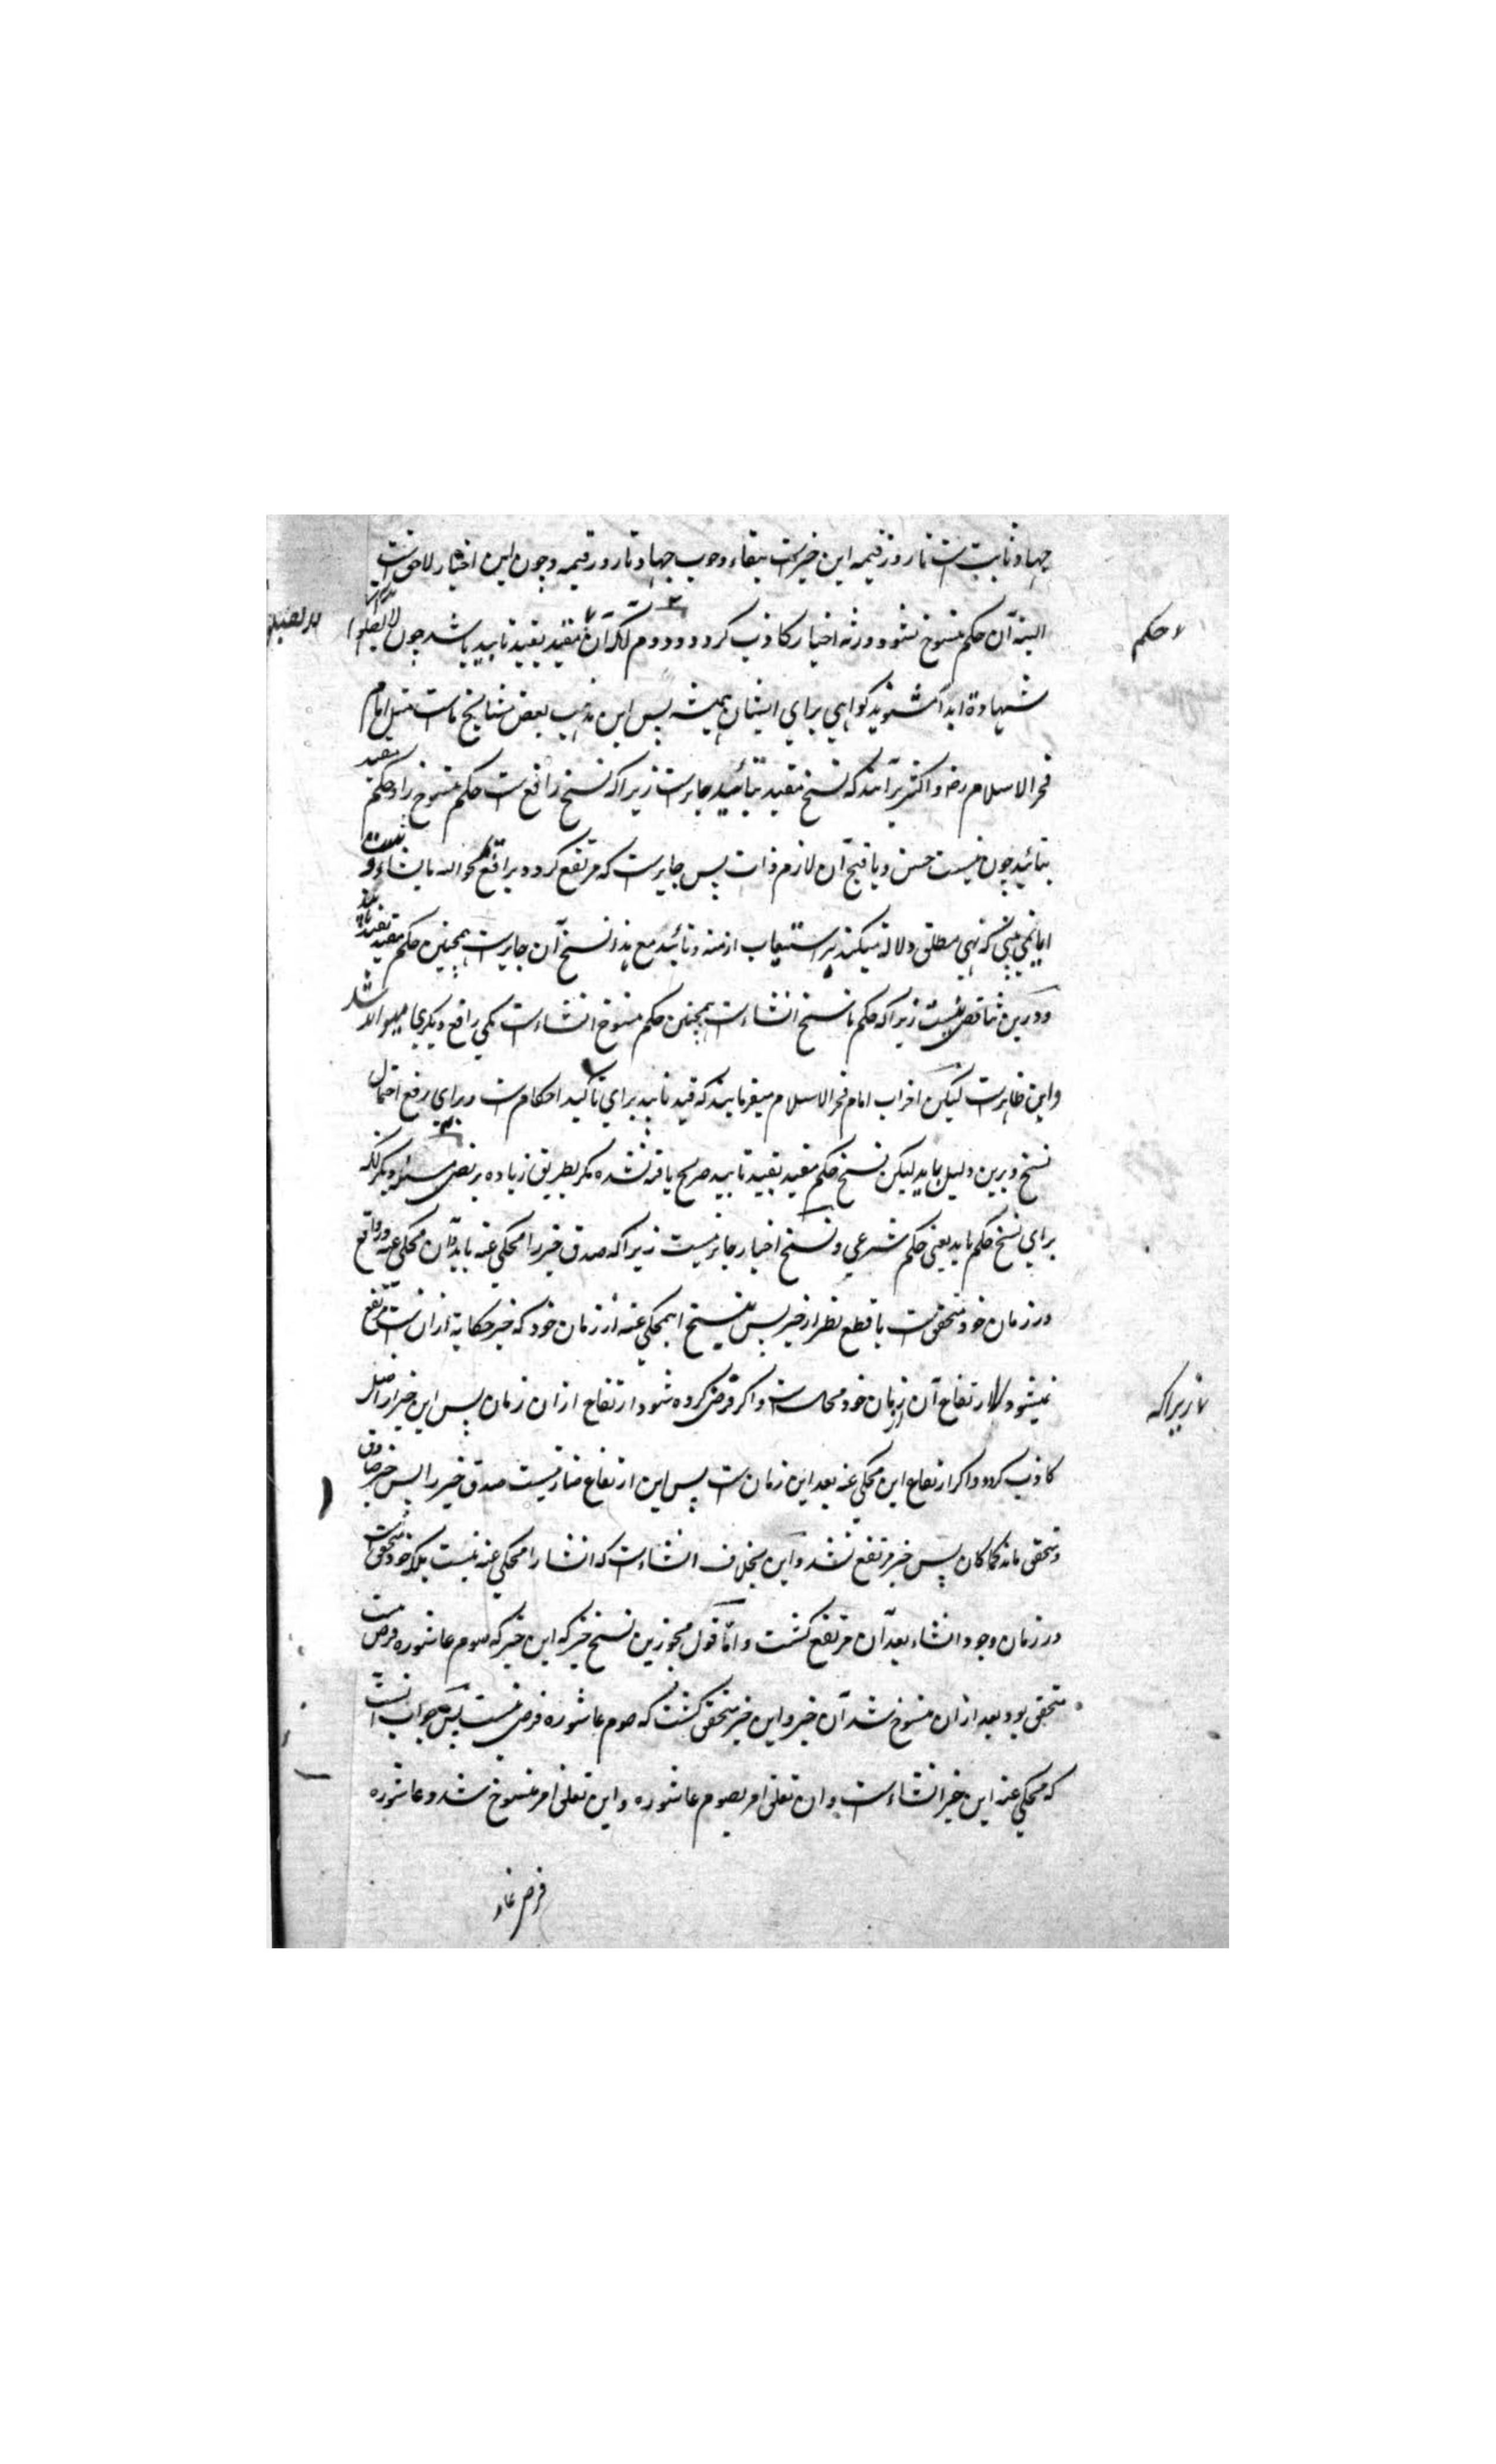 جهاد ثابت است تا روز قیمه این خبرست ببقاء وجوب جهاد تا روز قیمه و چون این اخبار لاحق است
البته آن حکم منسوخ نشود ورنه اخبار کاذب کردد و دوم آنکه آن مقید بقید تابید باشد چون لا تقبلوا
حکم
شهادة ابدا مشنوید کواهی برای ایشان همیشه پس این مذهب بعض مشایخ ماست مثل امام
فخر الاسلام رض و اکثر برآنند که نسخ مقید بتأبید جایرست زیرا که نسخ رافع ست حکم منسوخ را و حکم مقید
بتائید چون نیست حسن و یا قبح آن لازم ذات پس جایرست که مرتفع کردد برافع یمحو الله ما یشاء و یثبت
ایا نمی بینی که نهی مطلق دلالة میکند بر استیعاب ازمنه و تائید مع هذا نسخ آن جایرست همچنین حکم مقید
و درین تناقض نیست زیرا که حکم ناسخ انشاءست همچنین حکم منسوخ انشاءست یکی رافع دیکری میتواند شد
و این ظاهرست لیکن احزاب امام فخر الاسلام میفرمایند که قید تابید برای تاکید احکام ست و برای رفع احتمال
نسخ و برین دلیل باید لیکن نسخ حکم مقید بقید تابید صریح یافته نشده مکر بطریق زیاده بر نص مسئله دیکر آنکه
برای نسخ حکم باید یعنی حکم شرعی و نسخ اخبار جائز نیست زیرا که صدق خبر را محکی عنه باید و آن محکی عنه در واقع
در زمان خود متحقق ست با قطع نظر از خبر پس بنسخ این محکی عنه از زمان خود که خبر حکایة ازان ست مرتفع
نمیشود ارتفاع آن از زمان خود محالست و اکر فرض کرده شود ارتفاع ازان زمان پس این خبر از اصل
زیرا که
کاذب کردد و اکر ارتفاع این محکی عنه بعد این زمان ست پس این ارتفاع ضار نیست صدق خبر را پس خبر صادق
و متحقق ماند کما کان پس خبر مرتفع نشد و این بخلاف انشاءست که انشا را محکی عنه نیست بلکه خود متحقق است
در زمان وجود انشاء بعد آن مرتفع کشت و اما قول مجوزین نسخ خبر که این خبر که صوم عاشوره فرض ست
متحقق بود بعد ازان منسوخ شد آن خبر و این خبر متحقق کشت که صوم عاشوره فرض نیست پس جواب آنست
که محکی عنه این خبر انشاءست و آن تعلق امر بصوم عاشوره و این تعلق امر منسوخ شد و عاشوره
فرض نماند